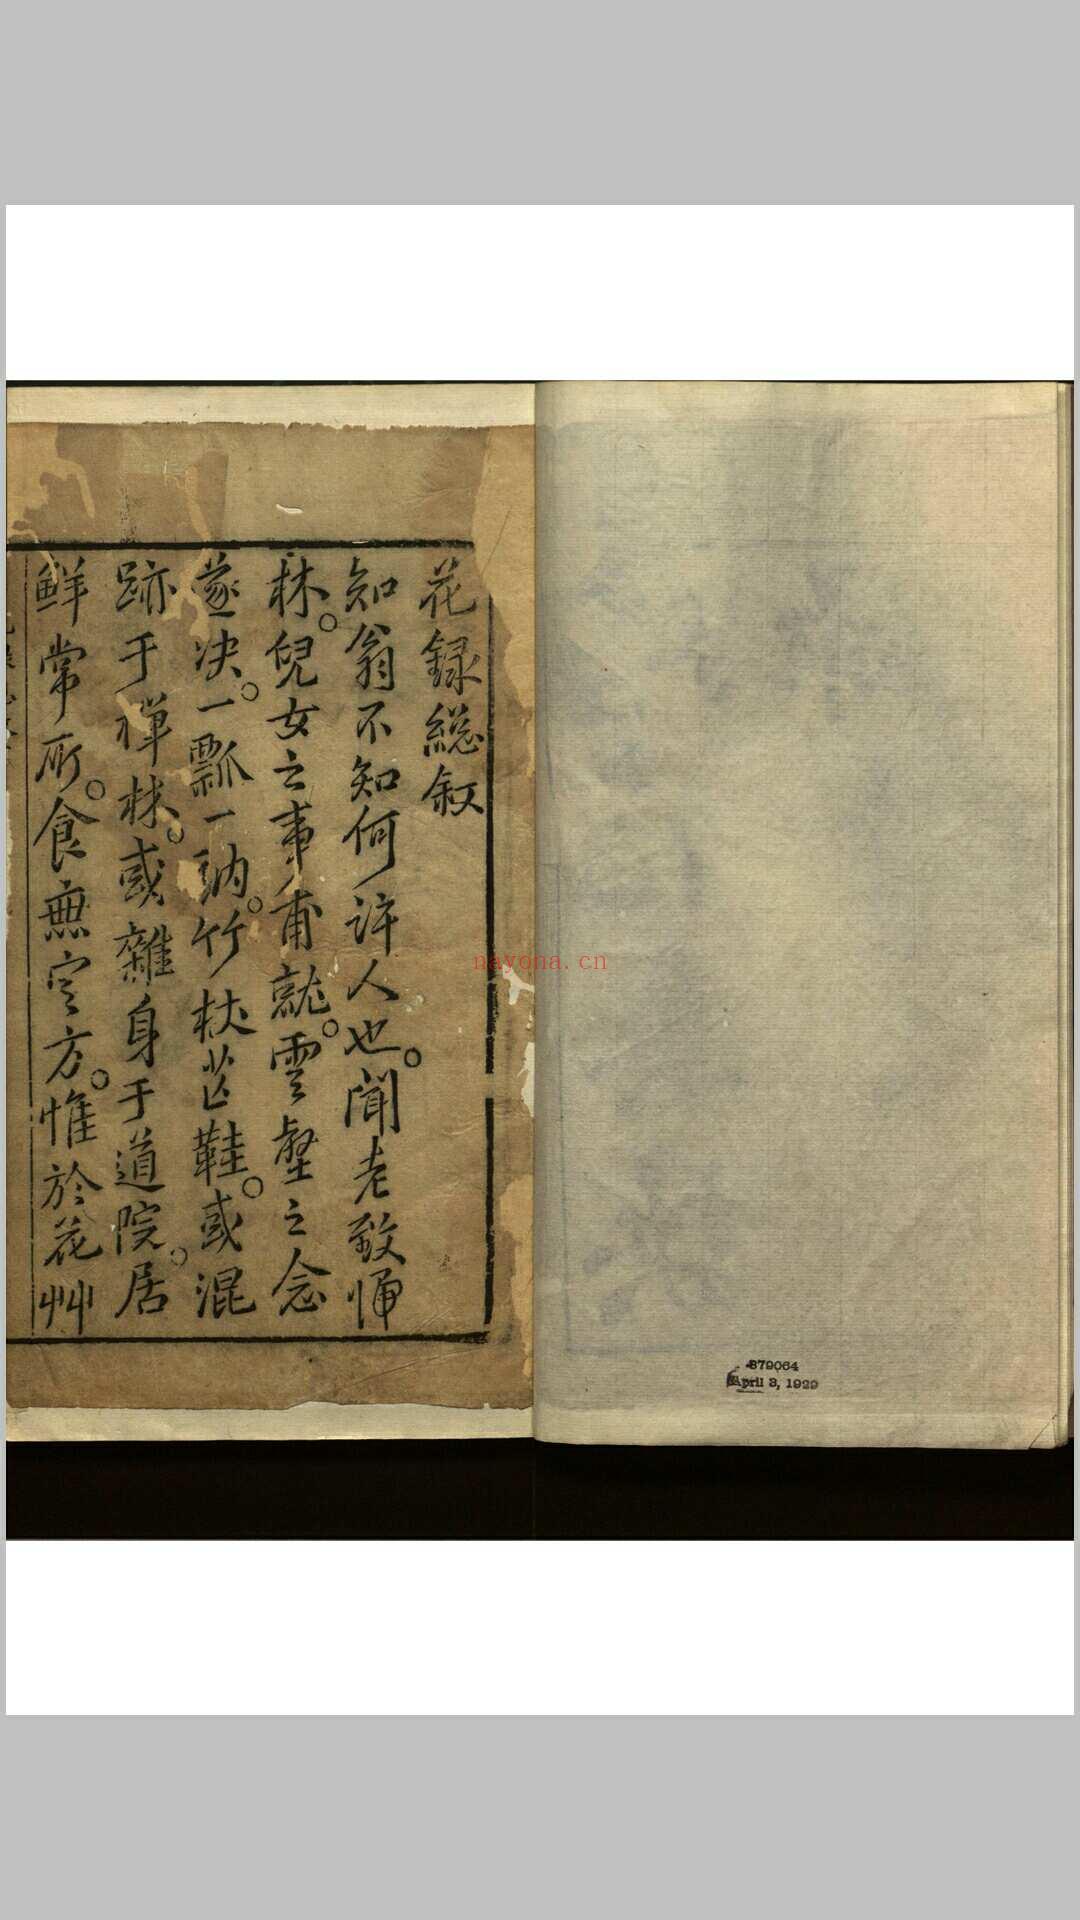 花録総叙
知翁不知何許人也。聞老致
林。兒女之事甫就。雲壑之念
遂决。一瓢一衲。竹杖芒鞋。或混
跡于禅林。或雜身于道院。居
鮮常所。食無定方。惟於花艸
nayona.cn
879064
April 3, 1929